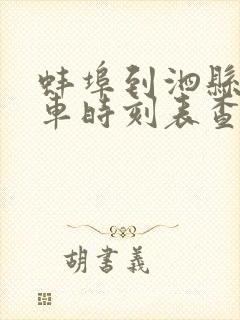 蚌埠到泗縣
車時刻表查
胡書義